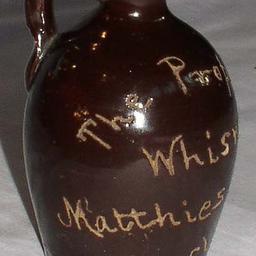 The Prop
Whis
Matthies